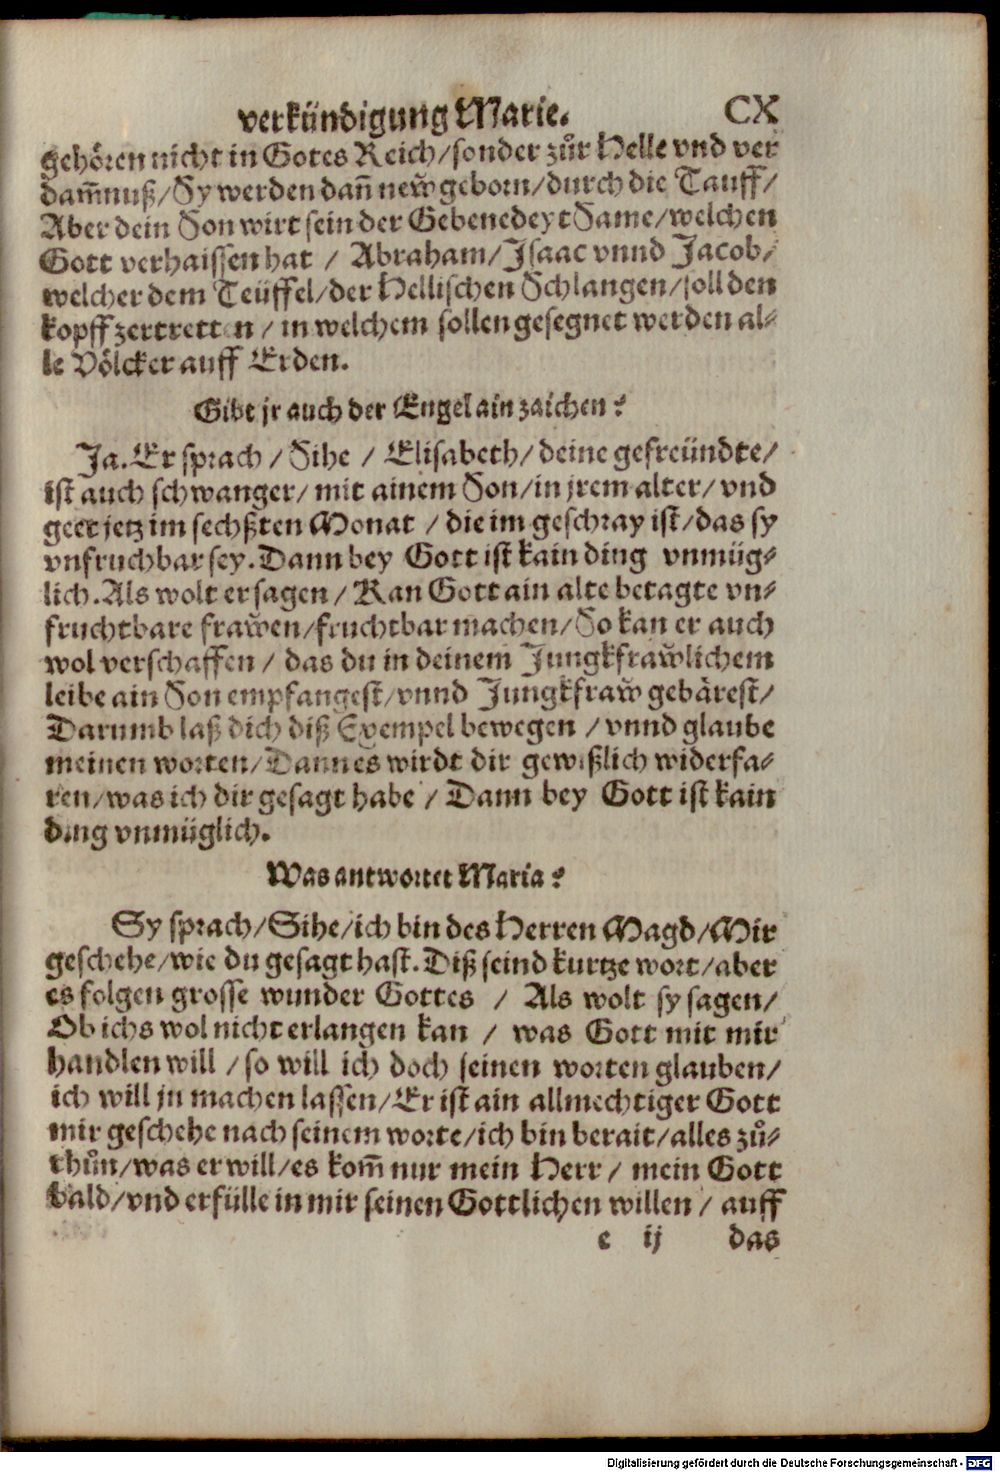 verkündigung Marie. CX
gehören nicht in Gotes Reich/sonder zůr Helle vnd ver
dam̃nuß/Sy werden dañ new̃ geborn/durch die Tauff/
Aber dein Son wirt sein der Gebenedeyt Same/welchen
Gott verhaissen hat / Abraham/Isaac vnnd Jacob/
welcher dem Teüffel/der Hellischen Schlangen/soll den
kopff zertretten / in welchem sollen gesegnet werden al-
le Völcker auff Erden.
Gibt jr auch der Engel ain zaichen?
Ja. Er sprach / Sihe / Elisabeth/deine gefreündte/
ist auch schwanger/mit ainem Son/in jrem alter/vnd
geet jetz im sechßten Monat / die im geschray ist/das sy
vnfruchbar sey. Dann bey Gott ist kain ding vnmüg-
lich. Als wolt er sagen / Kan Gott ain alte betagte vn-
fruchtbare fraw̃en/fruchtbar machen/So kan er auch
wol verschaffen / das du in deinem Jungkfraw̃lichem
leibe ain Son empfangest/vnnd Jungkfraw̃ gebärest/
Darumb laß dich diß Exempel bewegen / vnnd glaube
meinen worten/Dann es wirdt dir gewißlich widerfa-
ren/was ich dir gesagt habe / Dann bey Gott ist kain
ding vnmüglich.
Was antwortet Maria?
Sy sprach/Sihe/ich bin des Herren Magd/Mir
geschehe/wie du gesagt hast. Diß seind kurtze wort/aber
es folgen grosse wunder Gottes / Als wolt sy sagen/
Ob ichs wol nicht erlangen kan / was Gott mit mir
handlen will / so will ich doch seinen worten glauben/
ich will jn machen lassen/Er ist ain allmechtiger Gott
mir geschehe nach seinem worte/ich bin berait/alles zů-
thůn/was er will/es kom̃ nur mein Herr / mein Gott
bald/vnd erfülle in mir seinen Göttlichen willen / auff
e ij das
Digitalisierung gefördert durch die Deutsche Forschungsgemeinschaft - DFG